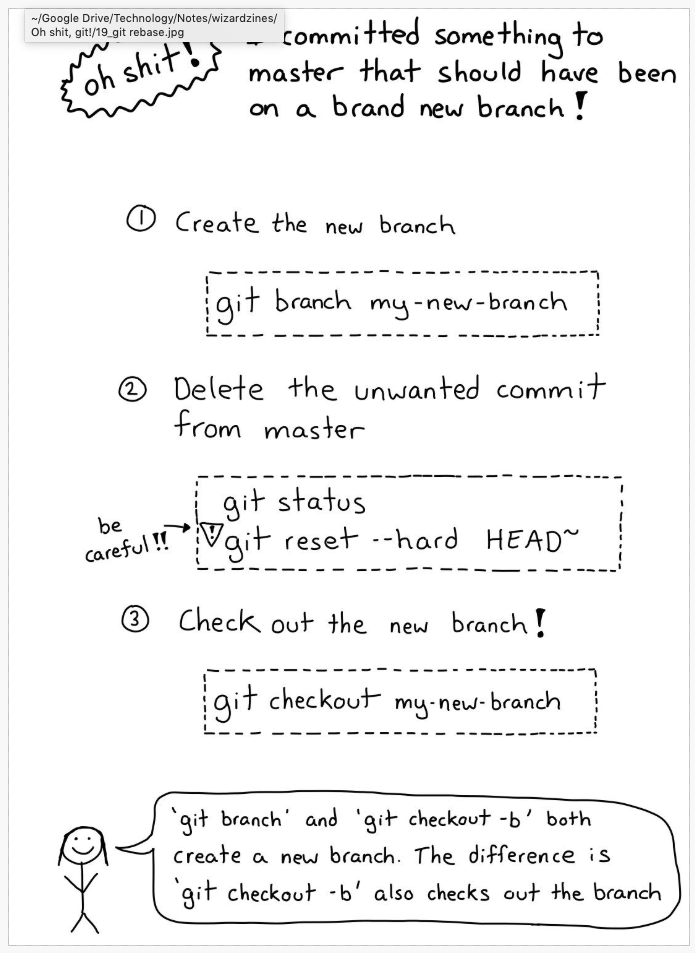 ~/Google Drive/Technology/Notes/wizardzines/
Oh shit, git!/19_git rebase.jpg
oh shit!
committed something to
master that should have been
on a brand new branch!
① Create the new branch
git branch my-new-branch
② Delete the unwanted commit
from master
git status
be
careful!!
git reset --hard HEAD~
③ Check out the new branch!
git checkout my-new-branch
'git branch' and 'git checkout -b' both
create a new branch. The difference is
'git checkout -b' also checks out the branch